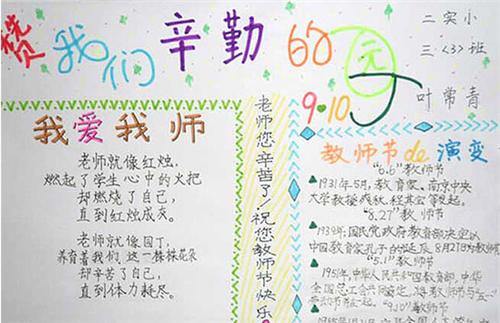 赞我们辛勤的园丁
二实小
三〈3〉班
叶常青
9.10
我爱我师
老师就像红烛,
燃起了学生心中的火把
却燃烧了自己,
直到红烛成灰。
老师就像园丁,
养育着我们,这一株株花朵
却辛苦了自己,
直到体力耗尽。
老师您辛苦了!祝您教师节快乐
教师节de演变
"6.6"教师节
1931年5月,教育家、南京中央
大学教授
"8.27"教师节
1939年,国民党政府教育部决定以
中国教育家孔子的诞辰8月27日为教师
"5.1"教师节
1951年,中华人民共和国教育部、中华
全国总工会共同商定,将教师节与五一
劳动节
"9.10"教师节